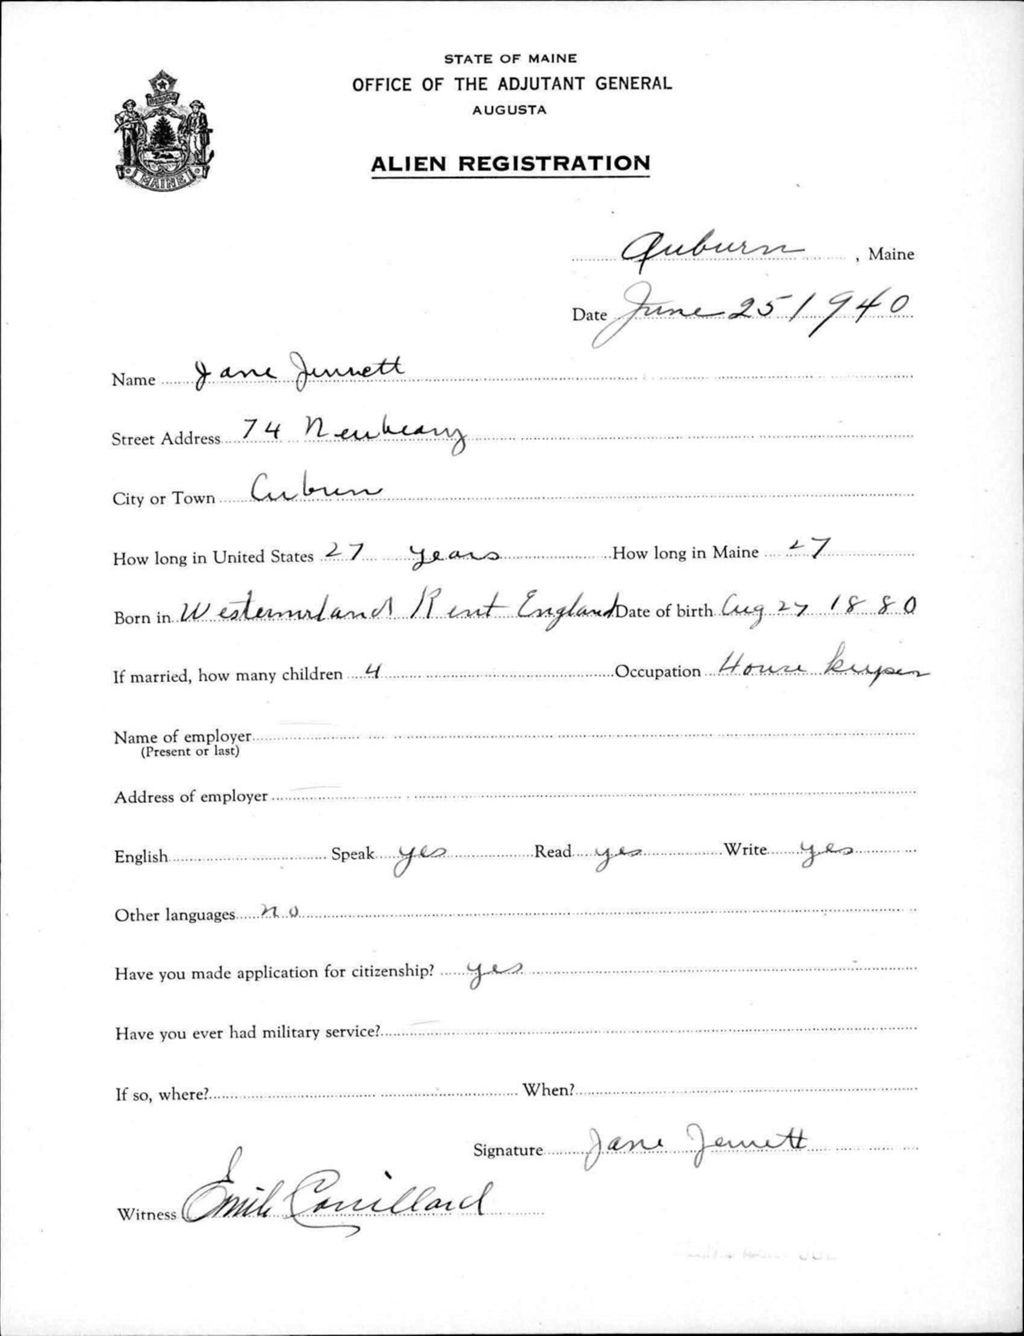 STATE OF MAINE
OFFICE OF THE ADJUTANT GENERAL
AUGUSTA
MAINE
ALIEN REGISTRATION
Auburn, Maine
Date June 25 1940
Name Jane Jennett
Street Address 74 Newbeary
City or Town Auburn
How long in United States 27 years How long in Maine 27
Born in Westermrland Kent England Date of birth Aug 27 1880
If married, how many children 4 Occupation House keeper
Name of employer
(Present or last)
Address of employer
English Speak yes Read yes Write yes
Other languages no
Have you made application for citizenship? yes
Have you ever had military service?
If so, where? When?
Signature Jane Jennett
Witness Emile Couillard